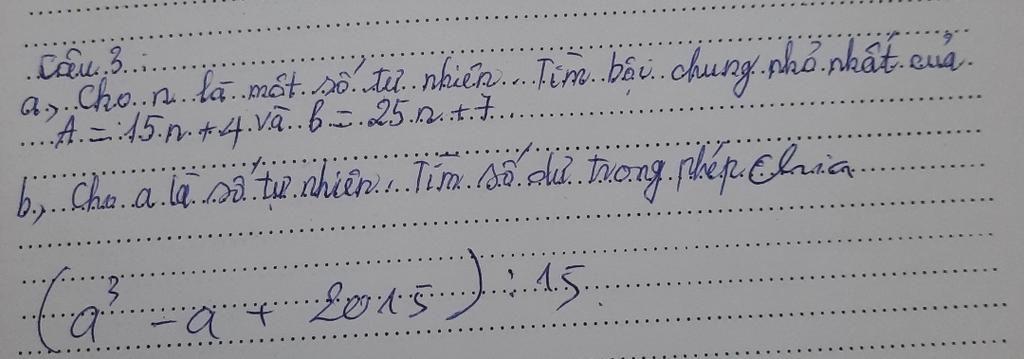 Câu 3:
a, Cho n là một số tự nhiên. Tìm bội chung nhỏ nhất của
A = 15n + 4 và b = 25n + 7
b, Cho a là số tự nhiên. Tìm số dư trong phép chia
(a³ - a + 2015) : 15